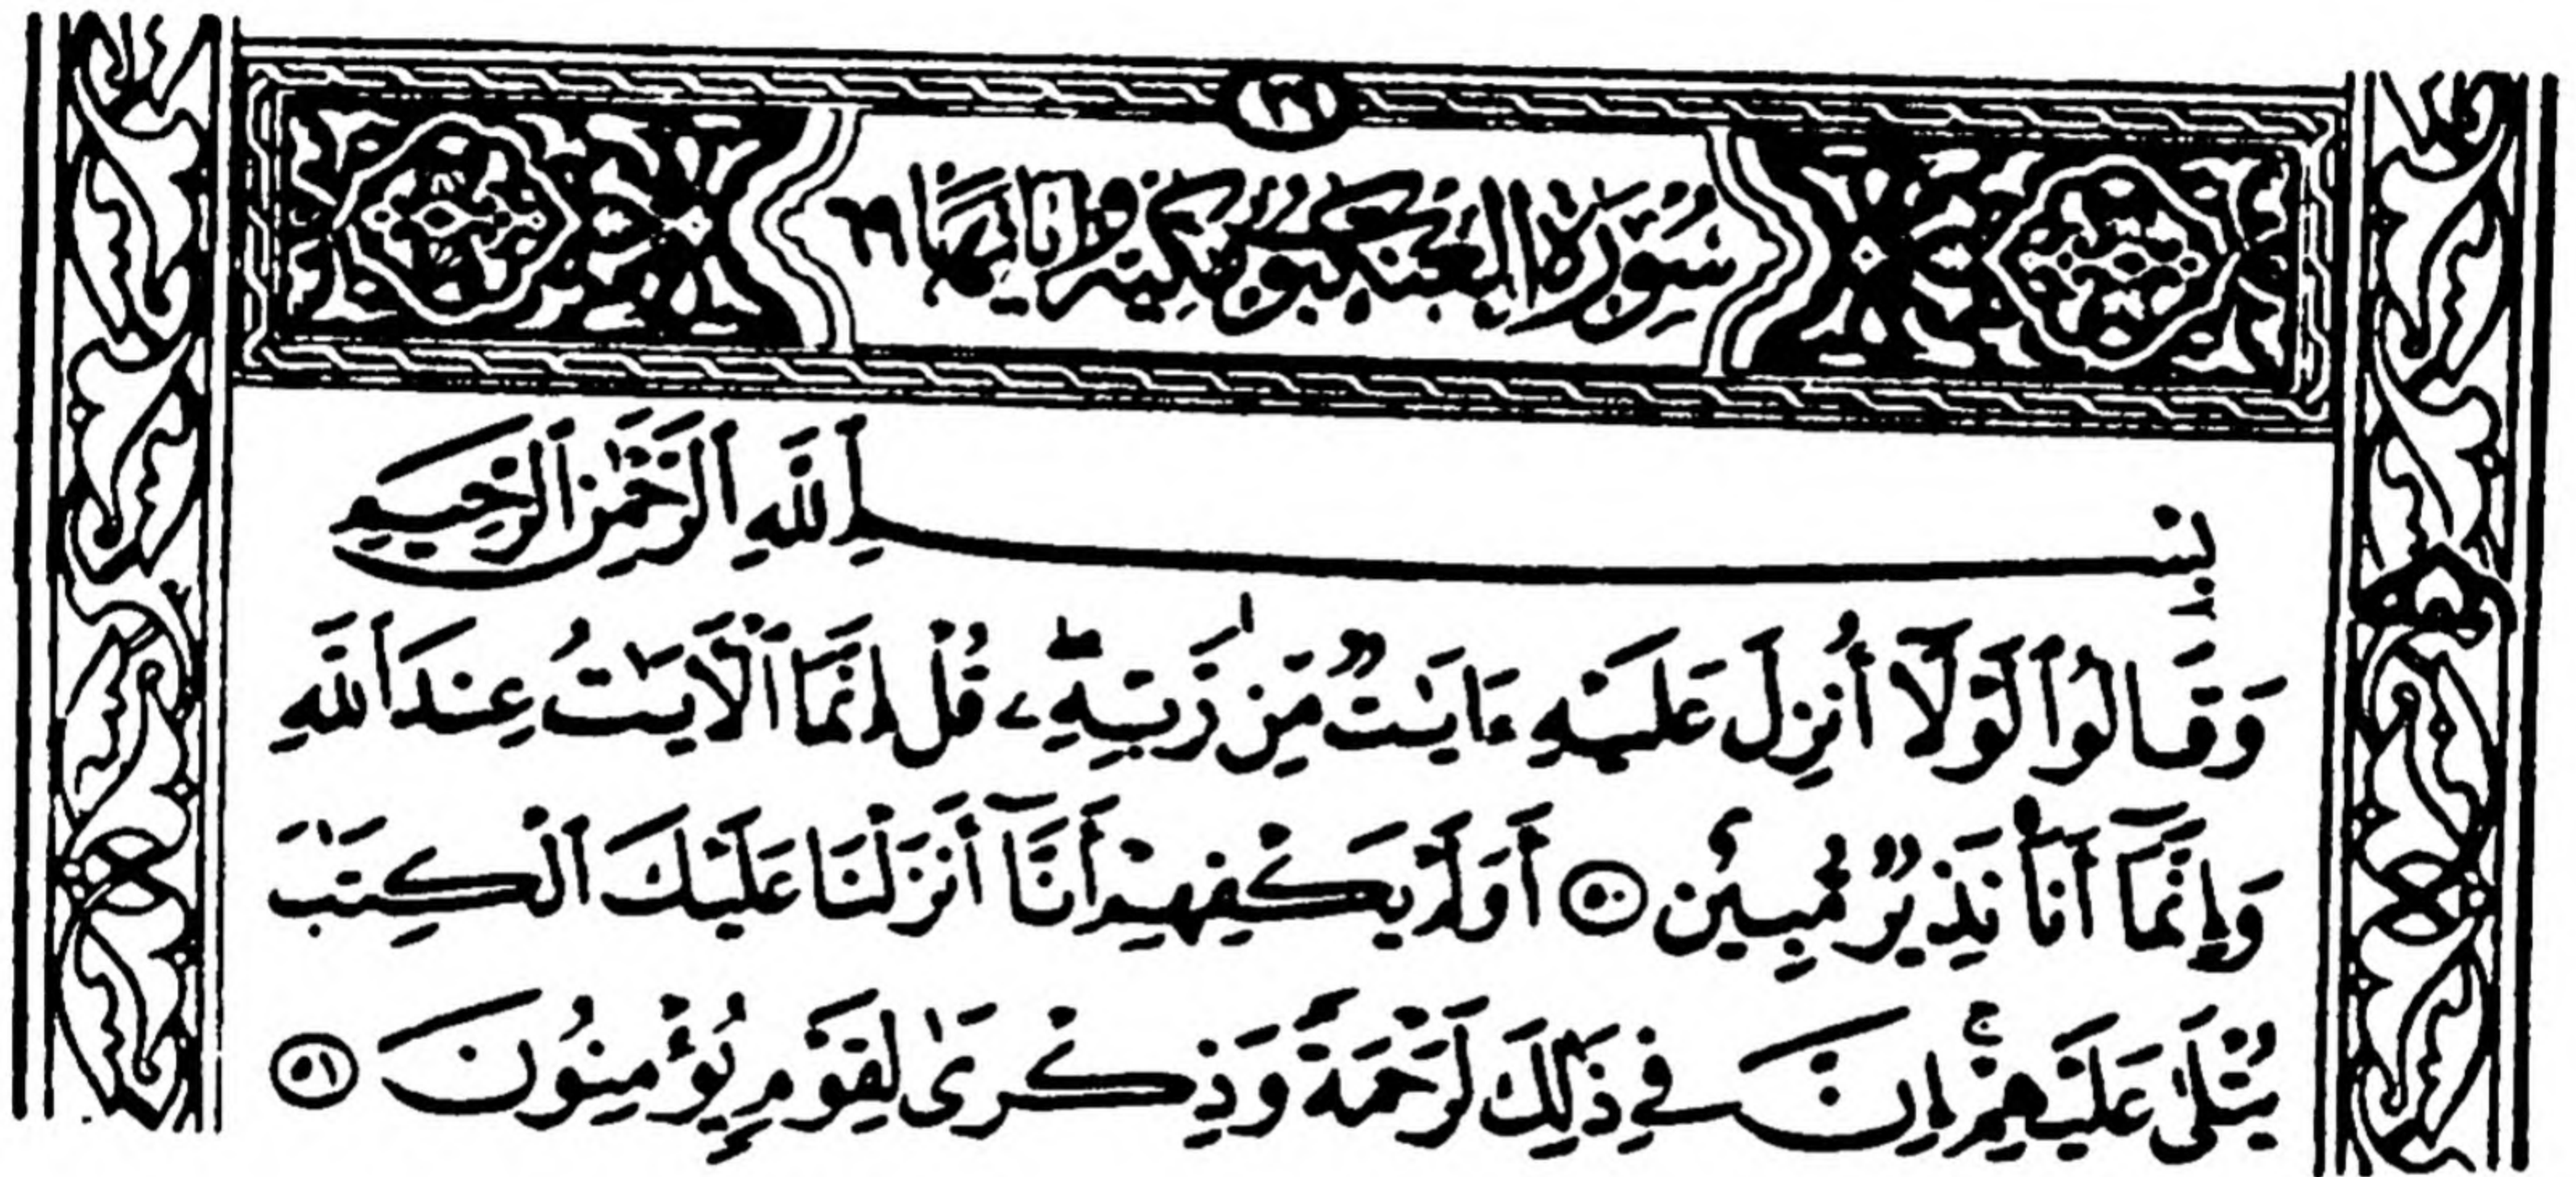 سُورَةُ العَنكَبُوتِ مَكِّيَّةٌ وَآيَاتُهَا ٦٩
بِسْمِ ٱللَّهِ ٱلرَّحْمَٰنِ ٱلرَّحِيمِ
وَقَالُوا۟ لَوْلَآ أُنزِلَ عَلَيْهِ ءَايَٰتٌ مِّن رَّبِّهِۦ ۖ قُلْ إِنَّمَا ٱلْءَايَٰتُ عِندَ ٱللَّهِ
وَإِنَّمَآ أَنَا۠ نَذِيرٌ مُّبِينٌ ٥٠ أَوَلَمْ يَكْفِهِمْ أَنَّآ أَنزَلْنَا عَلَيْكَ ٱلْكِتَٰبَ
يُتْلَىٰ عَلَيْهِمْ ۚ إِنَّ فِى ذَٰلِكَ لَرَحْمَةً وَذِكْرَىٰ لِقَوْمٍ يُؤْمِنُونَ ٥١